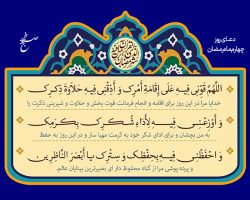 دعـای روز
چهارم ماه رمضان
اللّهُمَّ قَوِّنِي فِيهِ عَلَى إِقَامَةِ أَمْرِكَ وَ أَذِقْنِي فِيهِ حَلاَوَةَ ذِكْرِكَ
خدایا مرا در این روز برای اقامه و انجام فرمانت قوت بخش و حلاوت و شیرینی ذکرت را
وَ أَوْزِعْنِي فِيهِ لِأَدَاءِ شُكْرِكَ بِكَرَمِكَ
به من بچشان و برای ادای شکر خود به کرمت مهیا ساز و در این روز به حفظ
وَ احْفَظْنِي فِيهِ بِحِفْظِكَ وَ سِتْرِكَ يَا أَبْصَرَ النَّاظِرِينَ
و پرده پوشی مرا از گناه محفوظ دار ای بصیرترین بینایان عالم.